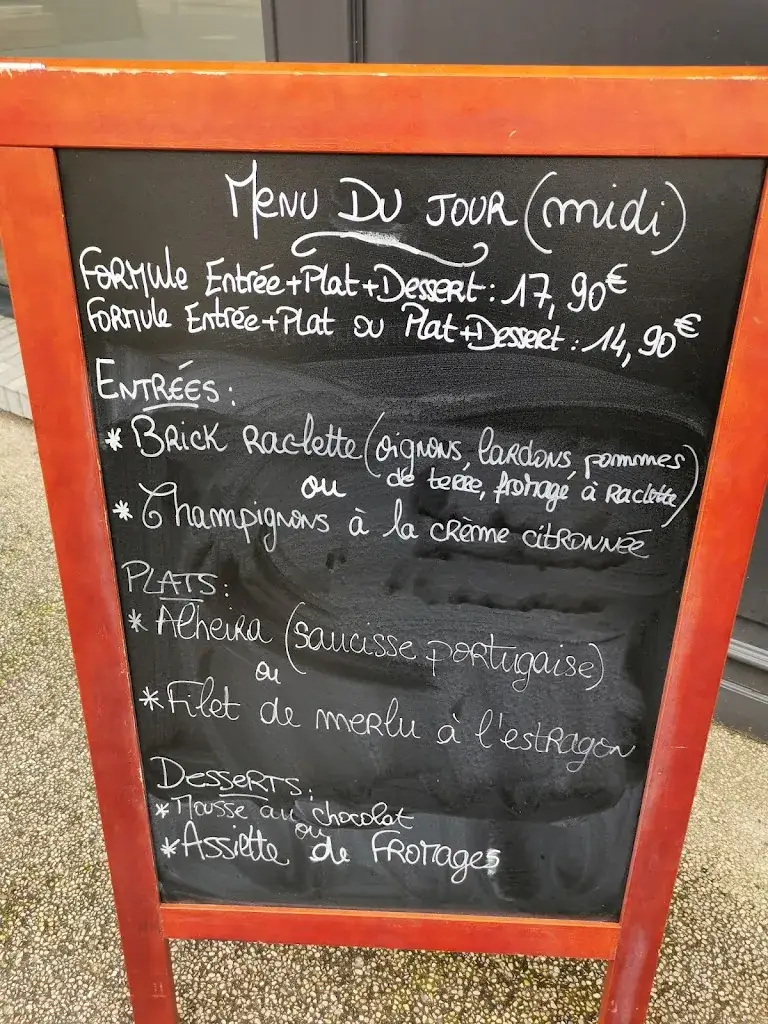 MENU DU JOUR (midi)
FORMULE Entrée+Plat+Dessert : 17,90€
FORMULE Entrée+Plat ou Plat+Dessert : 14,90€
ENTRÉES :
* BRICK Raclette (oignons, lardons, pommes
de terre, fromage à Raclette)
ou
* Champignons à la crème citronnée
PLATS :
* Alheira (saucisse portugaise)
ou
* Filet de merlu à l'estragon
DESSERTS :
* Mousse au chocolat
ou
* Assiette de Fromages